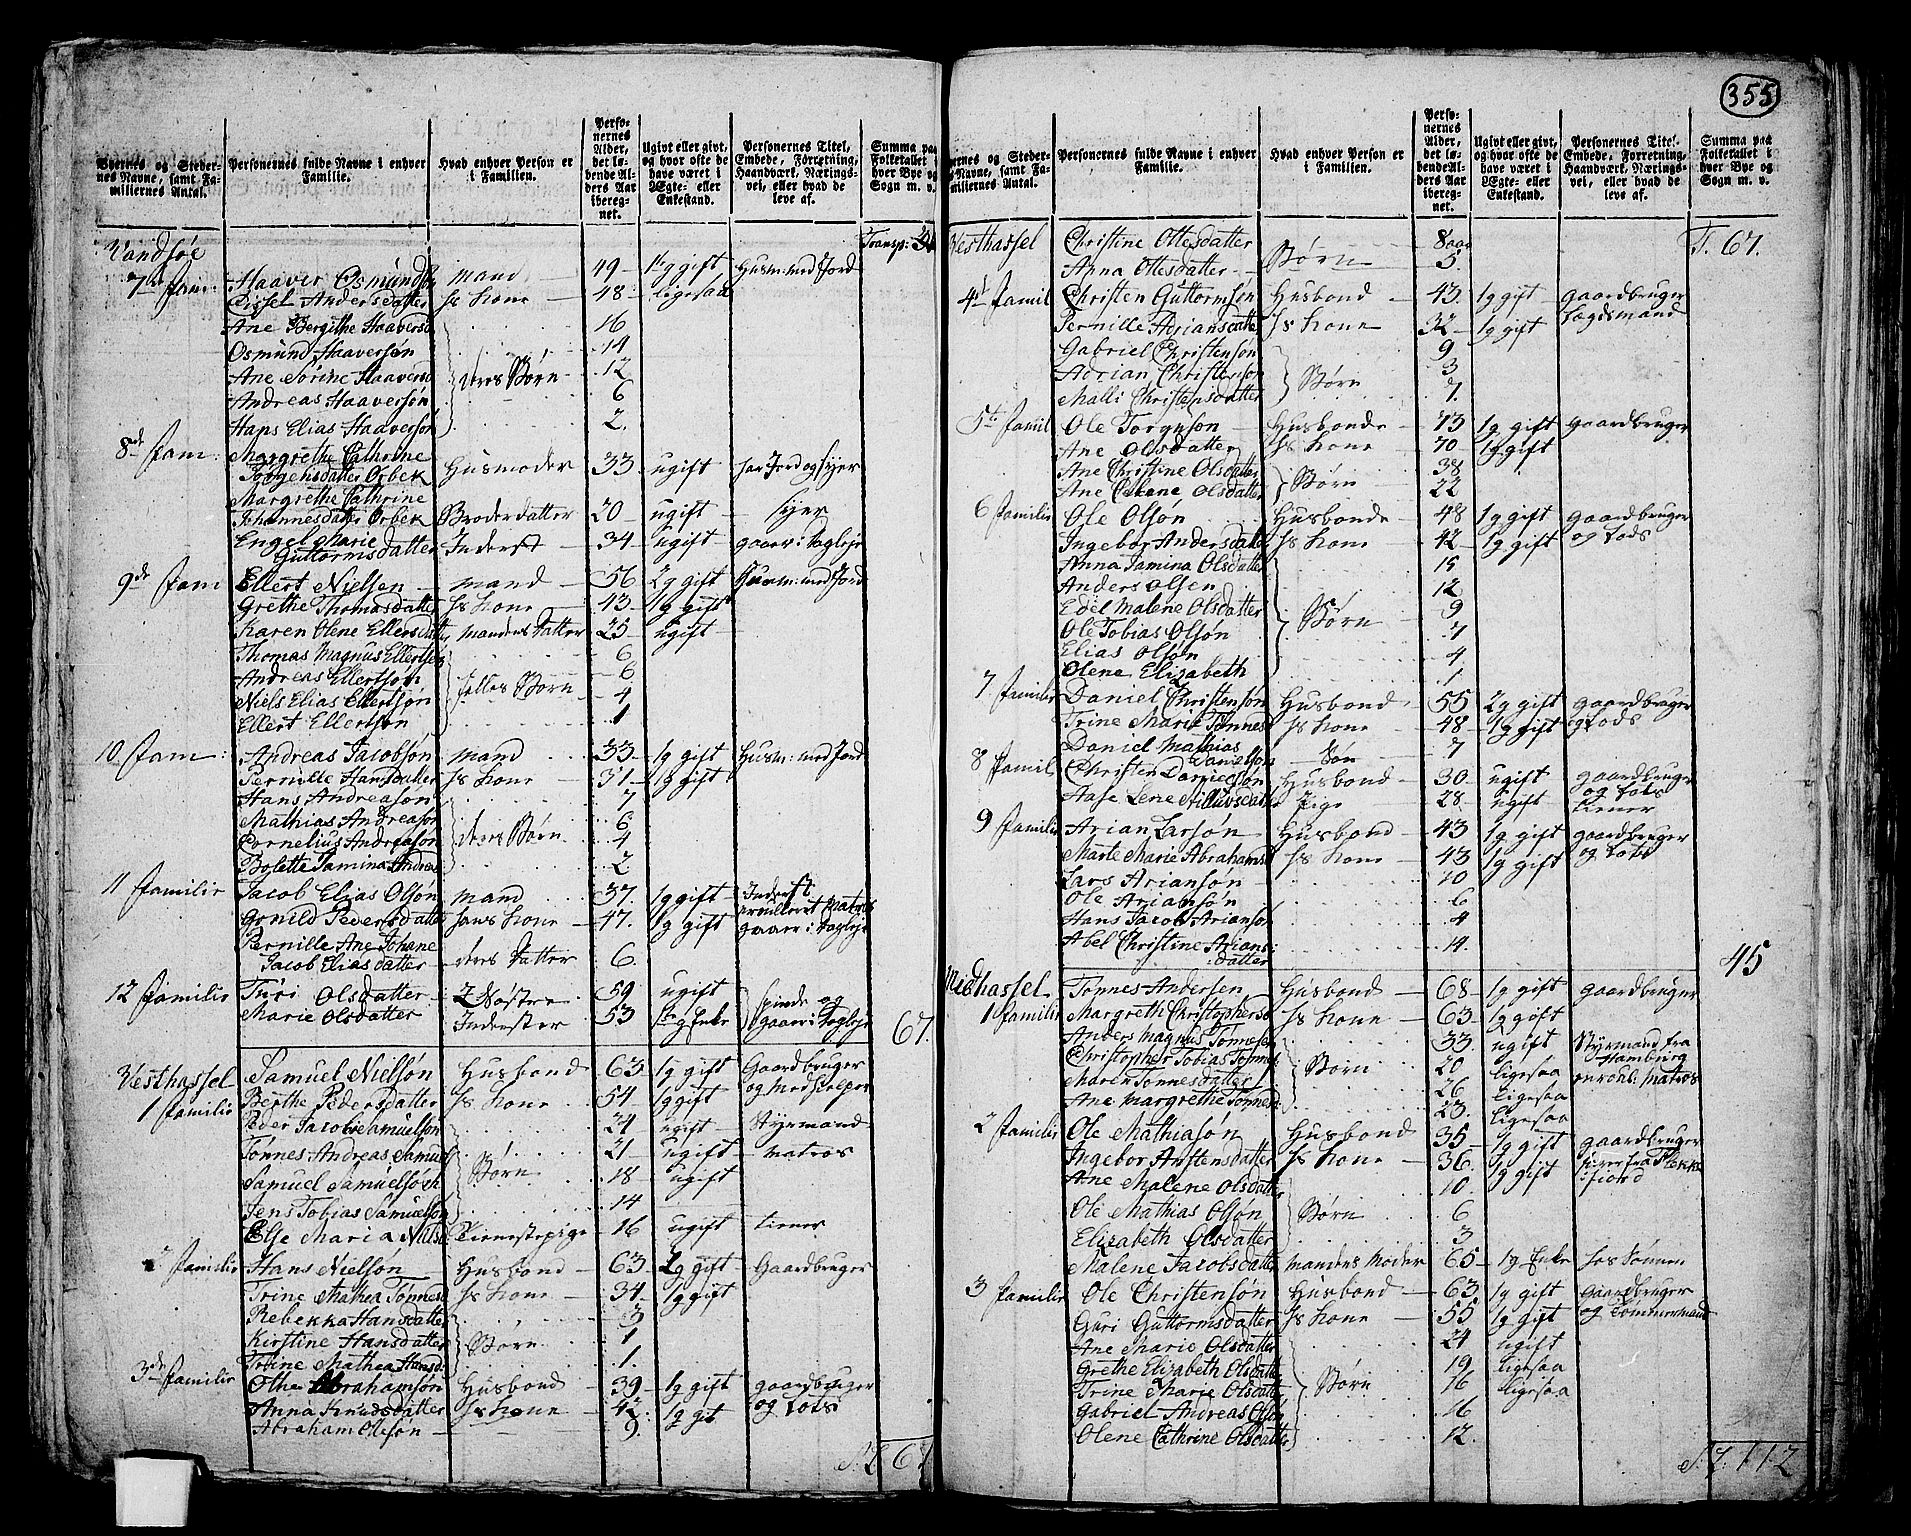 355
Byernes og Stedernes Navne, samt Familiernes Antal. | Personernes fulde Navne i enhver Familie. | Hvad enhver Person er i Familien. | Personernes Alder, det løbende Alders Aar iberegnet. | Ugivt eller givt, og hvor ofte de have været i Ægte- eller Enkestand. | Personernes Titel, Embede, Forretning, Haandværk, Næringsvei, eller hvad de leve af. | Summa paa Folketallet i hver Bye og Sogn m. v.
Vandsøe Transp:
7de Fam: Haaver Osmunds mand 49 1 g gift Husm: med Jord
Sissel Andersdatter hs Kone 48 ligesaa
Ane Bergithe Haavers 16
Osmund Haaversøn 14
Ane Sørine Haavers deres Børn 12
Andreas Haaversøn 6
Hans Elias Haaversøn 2.
8de Fam: Margrethe Cathrine
Jørgensdatter Orbek Husmoder 33 ugift har Jord og syer
Margrethe Cathrine
Johannesdatter Orbek Broderdatter 20 ugift syer
Engel Marie
Guttormsdatter Inderst 34 ugift gaaer i Dagleje
9de Fam Ellert Nielsen mand 56 2 g gift Husm: med Jord
Grethe Thomasdatter hs Kone 43 1 g gift
Karen Olene Ellersdatter mandens Datter 25 ugift
Thomas Magnus Ellertsøn 6
Andreas Ellertsøn 6
Niels Elias Ellertsøn fælles Børn 4
Ellert Ellertsøn 1
10 Fam: Andreas Jacobsøn mand 33 1 g gift Husm: med Jord
Pernille Hansdatter hs Kone 31 1 g gift
Hans Andreasøn 7
Mathias Andreasøn 6
Cornelius Andreasøn deres Børn 4
Bolette Tamina Andreas 2
11 Familie Jacob Elias Olsøn mand 37. 1 g gift Inderst
Gonild Pedersdatter hans Kone 47. 1 g gift gaaer i Dagleje
Pernille Ane Johane
Jacob Eliasdatter deres Datter 6.
12 Familie Turi Olsdatter 2 Søstre 59 ugift Spinde og
Marie Olsdatter Inderster 53 1 g Enke gaaer i Dagleje 67.
Vesthassel Samuel Nielsøn Husbond 63 1 g gift Gaardbruger
1 Familie Berthe Pedersdatter hs Kone 54 1 g gift
Peder Jacob Samuelsøn 24 ugift Styrmand
Tønnes Andreas Samuel 21 ugift matros
Samuel Samuelsøn Børn 18 ugift
Jens Tobias Samuelsøn 14
Else Maria Niels Tienestepige 16 ugift tiener
2 Familie Hans Nielsøn Husbond 63 2 g gift Gaardbruger
Trine Mathea Tønnes hs Kone 34 1 g gift
Rebekka Hansdatter 3
Kirstine Hansdatter Børn 1
Trine Mathea Hansd 1.
3de Familie Othe Abrahamsøn Husbond 39 1 g gift gaardbruger
Anna Knudsdatter hs Kone 42 1 g git og Lods
Abraham Ottesøn 9.
67
Vesthassel Christine Ottesdatter 8 aar T. 67.
Anna Ottesdatter Børn 5.
4de Famil Christen Guttormsøn Husbond 43. 1 g gift gaardbruger
Pernille Adriansdatter hs Kone 32 1 g gift Lægdsmand
Gabriel Christensøn 9
Adrian Christensøn Børn 3
Malli Christensdatter 7.
5te Famil Ole Torgusøn Husbonde 73 1 g gift gaardbruger
Ane Olsdatter hs Kone 70 1 g gift
Ane Christine Olsdatter Børn 38
Ane Helene Olsdatter 22
6 Familie Ole Olsøn Husbonde 48 1 g gift gaardbruger
Ingebor Andersdatter hs Kone 42 1 g gift og Lods
Anna Tamina Olsdatter 15
Anders Olsen 12
Edel Malene Olsdatter 9
Ole Tobias Olsøn Børn 7
Elias Olsøn 4
Olene Elizabeth 1
7 Familie Daniel Christensøn Husbond 55 2 g gift gaardbruger
Trine Marie Tønnes hs Kone 48 1 g gift og Lods
Daniel Mathias
Danielsøn Søn 7
8 Famil Christen Danielsøn Husbond 30 ugift gaardbruger
og Lods
Aase Lene Nielsdatter Pige 28 ugift tiener
9 Familie Arian Larsøn Husbond 43 1 g gift gaardbruger
Marte Marie Abrahams hs Kone 43 1 g gift og Lods
Lars Ariansøn 10
Ole Ariansøn 6
Hans Jacob Ariansøn 4
Abel Christine Arians:
datter 14. 45
Midhassel Tønnes Andersen Husbond 68 1 g gift gaardbruger
1 Familie Margreth Christophers hs Kone 63 1 g gift
Anders Magnus Tønnesen 33. ugift Styrmand fra
Hamburg
Christopher Tobias Tønnes Børn 20 ligesaa enroul: matros
Maren Tønnesdatter 26 ligesaa
Ane Margrethe Tønnesd 23. ligesaa
2 Familie Ole Mathiasøn Husbond 35 1 g gift gaardbruger
Ingebor Anstensdatter hs Kone 36. 1 g gift
Ane Malene Olsdatter 10
Ole Mathias Olsøn Børn 6
Elizabeth Olsdatter 3
Malene Jacobsdatter mandens Moder 65 1 g Enke hos Sønnen
3 Familie Ole Christensøn Husbond 63 1 g gift gaardbruger
Guri Guttormsdatter hs Kone 55 1 g gift og Tømmermand
Ane Marie Olsdatter 24 ugift
Grethe Elizabeth Olsdatter 19 ligesaa
Trine Marie Olsdatter Børn 16 ligesaa
Gabriel Andreas Olsøn 16
Olene Cathrine Olsdatter 12
112